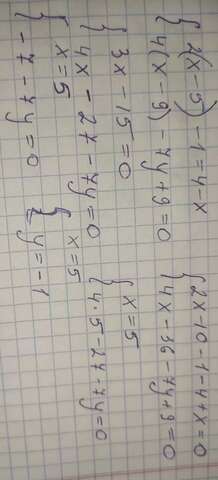 { 2(x - 5) - 1 = 4 - x
{ 4(x - 9) - 7y + 9 = 0
{ 2x - 10 - 1 - 4 + x = 0
{ 4x - 36 - 7y + 9 = 0
{ 3x - 15 = 0
{ 4x - 27 - 7y = 0
{ x = 5
{ 4 · 5 - 27 - 7y = 0
{ x = 5
{ -7 - 7y = 0
{ x = 5
{ y = -1